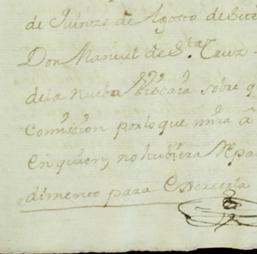 de Quinze de Agosto de Sete
Don Manuel de Sta Cruz
de la Nueba Vizcaia sobre q
Comision por lo que mira à
en quien, no hubiera Repa
dimento para Exercerla